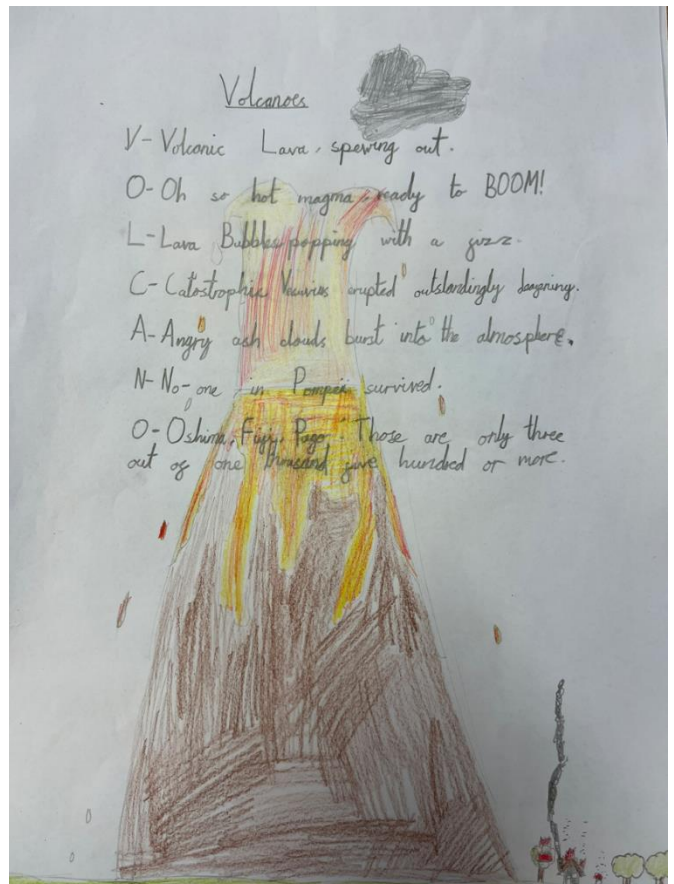 Volcanoes
V- Volcanic Lava, spewing out.
O- Oh so hot magma, ready to BOOM!
L- Lava Bubbles popping with a fizz.
C- Catostrophic Vesuvius erupted outstandingly dangering.
A- Angry ash clouds burst into the atmosphere.
N- No-one in Pompeii survived.
O- Oshima, Fuji, Pago. Those are only three
out of one thousand five hundred or more.